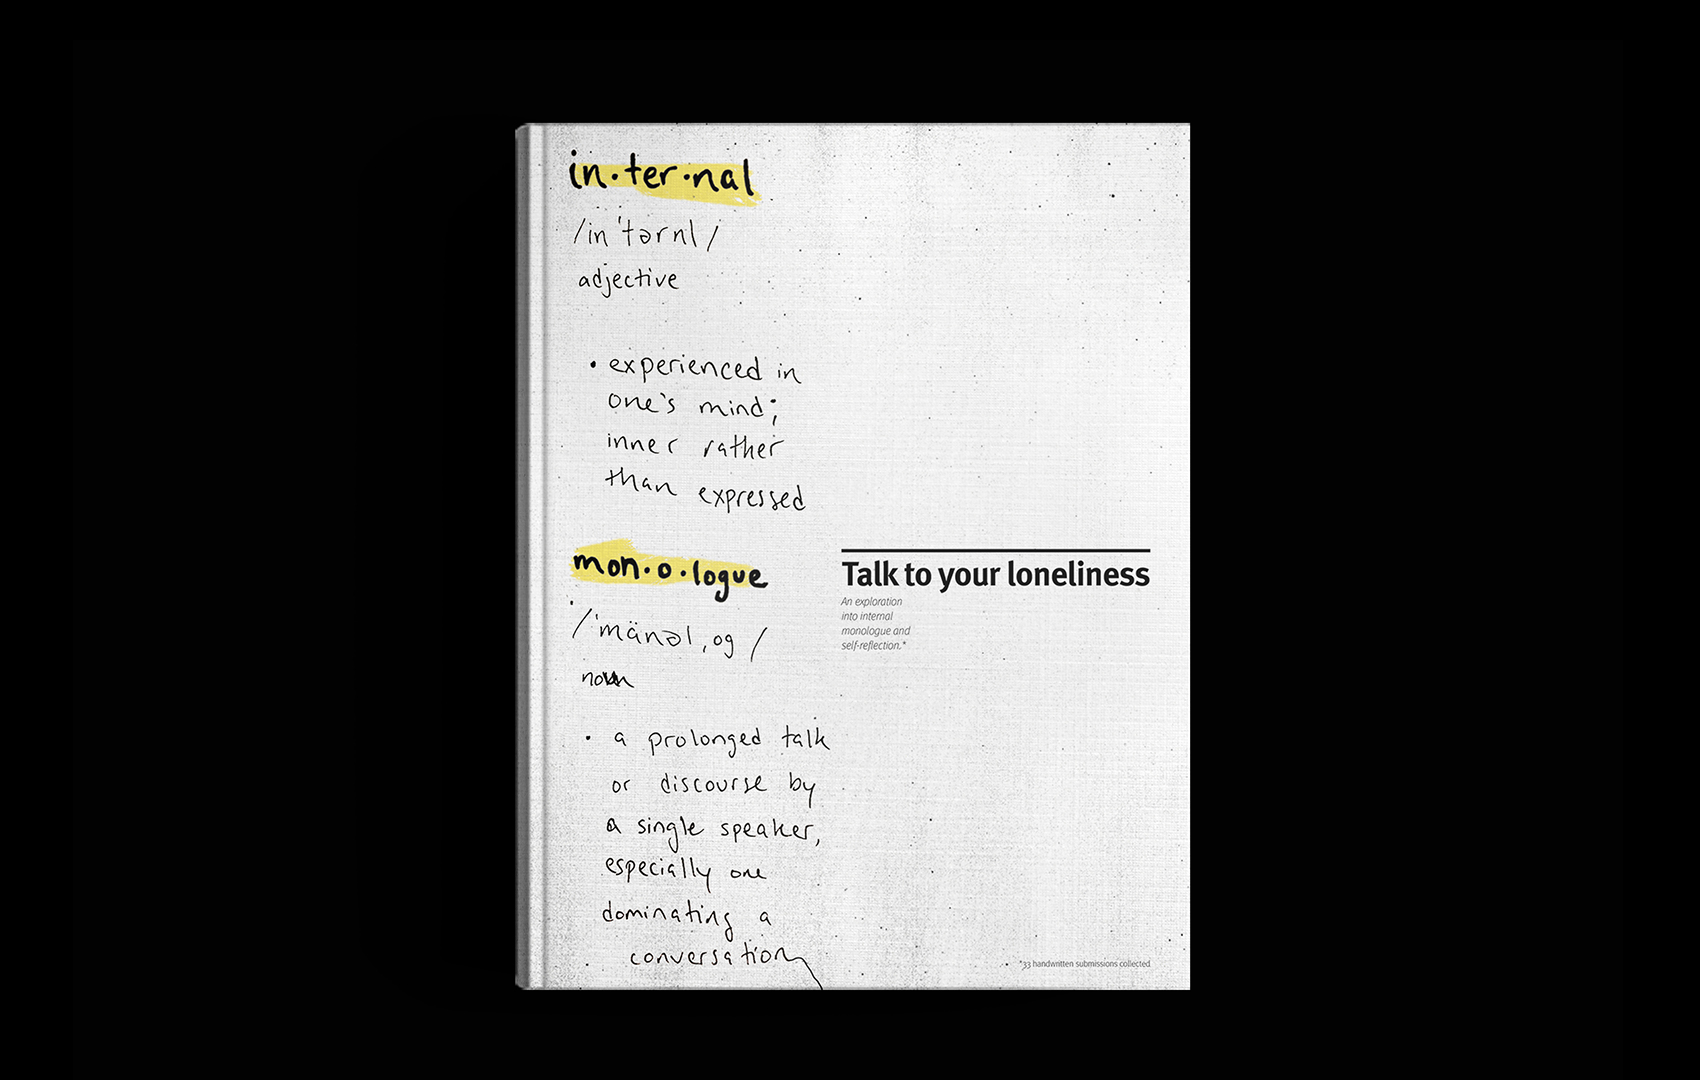 in·ter·nal
/in'tərnl/
adjective
• experienced in
one's mind;
inner rather
than expressed
mon·o·logue
/'mänəl,og/
noun
• a prolonged talk
or discourse by
a single speaker,
especially one
dominating a
conversation
Talk to your loneliness
An exploration
into internal
monologue and
self-reflection.*
*33 handwritten submissions collected